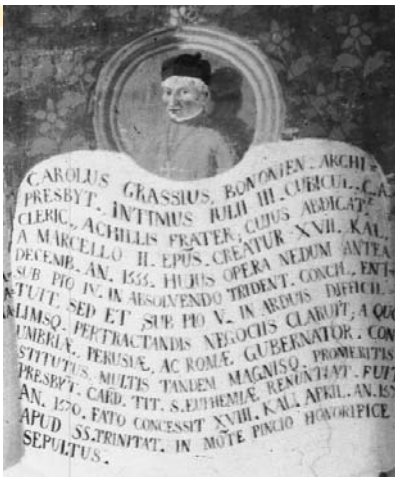 CAROLUS GRASSIUS, BONONIEN. ARCHI-
PRESBYT., INTIMUS IULII III. CUBICUL., C.A.
CLERIC., ACHILLIS FRATER, CUJUS ABDICAT.E
A MARCELLO II. EPUS. CREATUR XVII. KAL.
DECEMB. AN. 1555. HUJUS OPERA NEDUM ANTEA
SUB PIO IV. IN ABSOLVENDO TRIDENT. CONCIL. ENI-
TUIT, SED ET SUB PIO V. IN ARDUIS DIFFICIL-
LIMSQ. PERTRACTANDIS NEGOCIIS CLARUIT, A QUO
UMBRIÆ, PERUSIÆ, AC ROMÆ GUBERNATOR CON
STITUTUS, MULTIS TANDEM MAGNISQ. PROMERITIS
PRESBYT. CARD. TIT. S. EUPHEMIÆ RENUNTIAT. FUIT
AN. 1570. FATO CONCESSIT XVIII. KAL. APRIL. AN.
APUD SS. TRINITAT. IN MOTE PINCIO HONORIFICE
SEPULTUS.